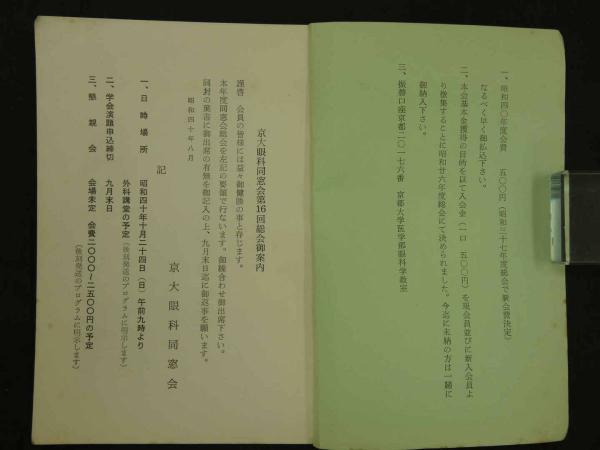 一、昭和四〇年度会費　五〇〇円（昭和三十七年度総会で新会費決定）
なるべく早く御払込下さい。
二、本会基本金獲得の目的を以て入会金（一口　五〇〇円）を現会員並びに新入会員よ
り徴集することに昭和廿六年度総会にて決められました。今迄に未納の方は一緒に
御納入下さい。
三、振替口座京都二〇一七六番　京都大学医学部眼科学教室
京大眼科同窓会第16回総会御案内
謹啓　会員の皆様には益々御健勝の事と存じます。
本年度同窓会総会を左記の要領で行ないます。御繰合わせ御出席下さい。
同封の葉書に御出席の有無を御記入の上、九月末日迄に御返事を願います。
昭和四十年八月
京大眼科同窓会
記
一、日時場所　昭和四十年十月二十四日（日）午前九時より
外科講堂の予定（後刻発送のプログラムに明示します）
二、学会演題申込締切　九月末日
三、懇親会　会場未定　会費二〇〇〇～二五〇〇円の予定
（後刻発送のプログラムに明示します）